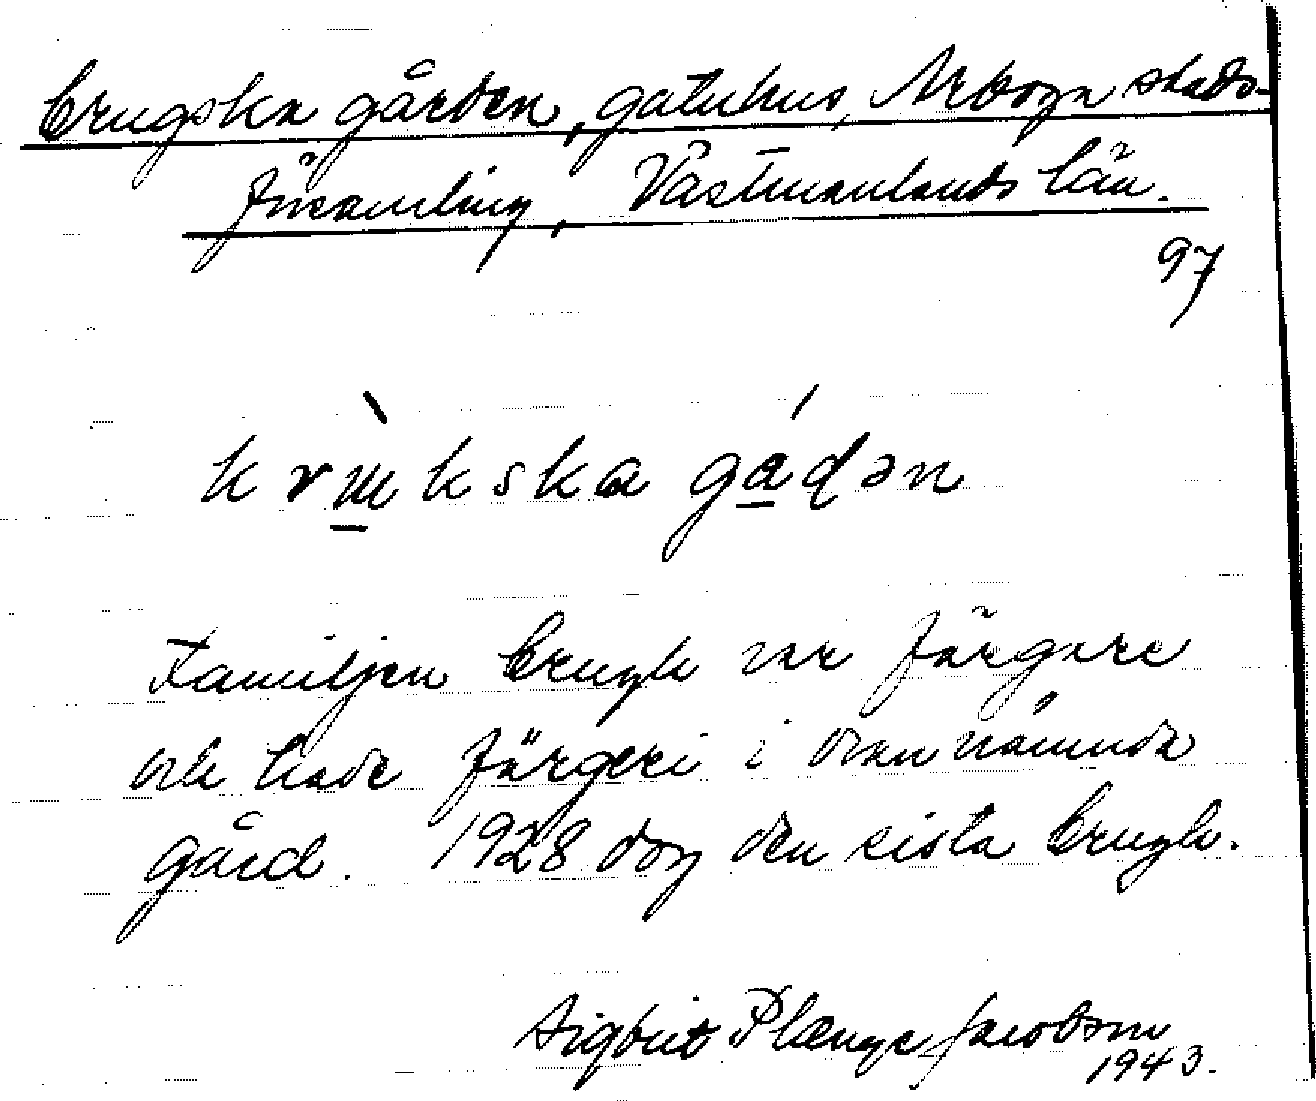 Crugska gården, gatuhus, Arboga stads-
församling, Västmanlands län.
97
krɯ̀kska gáɖən
Familjen Crugh var färgare
och hade färgeri i ovannämnda
gård. 1928 dog den sista Crugh.
Sigbrit Plænge Jacobson
1943.